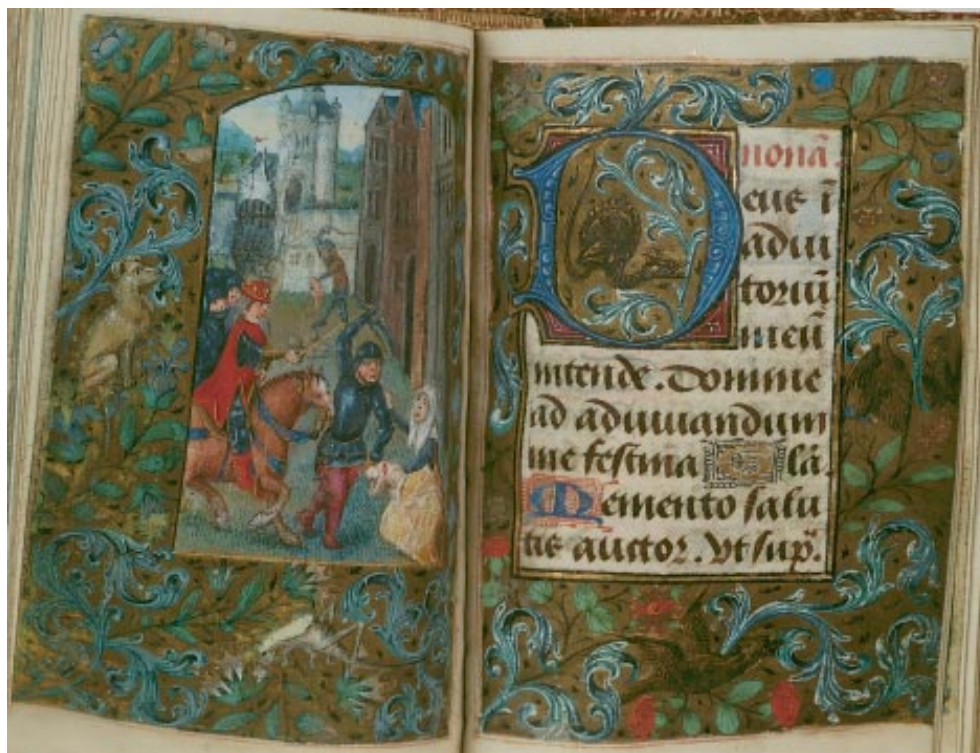 nonā.
Deus ī
adiu
toriū
meū
intende. Domine
ad adiuuandum
me festina Gl̄a.
Memento salu
tis auctor. Vt sup̄.